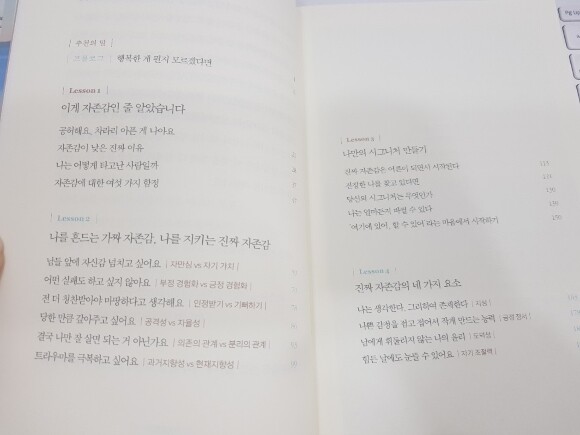 | 추천의 말
| 프롤로그 | 행복한 게 뭔지 모르겠다면
| Lesson 1
이게 자존감인 줄 알았습니다
공허해요, 차라리 아픈 게 나아요
자존감이 낮은 진짜 이유
나는 어떻게 타고난 사람일까
자존감에 대한 여섯 가지 함정
| Lesson 2
나를 흔드는 가짜 자존감, 나를 지키는 진짜 자존감
남들 앞에 자신감 넘치고 싶어요 | 자만심 vs 자기 가치 |
어떤 실패도 하고 싶지 않아요 | 부정 경험화 vs 긍정 경험화 |
전 더 칭찬받아야 마땅하다고 생각해요 | 인정받기 vs 기뻐하기 |
당한 만큼 갚아주고 싶어요 | 공격성 vs 자율성 |
결국 나만 잘 살면 되는 거 아닌가요 | 의존의 관계 vs 분리의 관계 |
트라우마를 극복하고 싶어요 | 과거지향성 vs 현재지향성 |
| Lesson 3
나만의 시그니처 만들기
진짜 자존감은 어른이 되면서 시작된다
진정한 나를 찾고 있다면
당신의 시그니처는 무엇인가
나는 얼마든지 바뀔 수 있다
여기에 있어, 할 수 있어 라는 마음에서 시작하기
| Lesson 4
진짜 자존감의 네 가지 요소
나는 생각한다, 그러하여 존재한다
나쁜 감정을 접고 접어서 작게 만드는 능력
남에게 휘둘리지 않는 나의 윤리 | 도덕성 |
힘든 날에도 눈뜰 수 있어요 | 자기 조절력 |